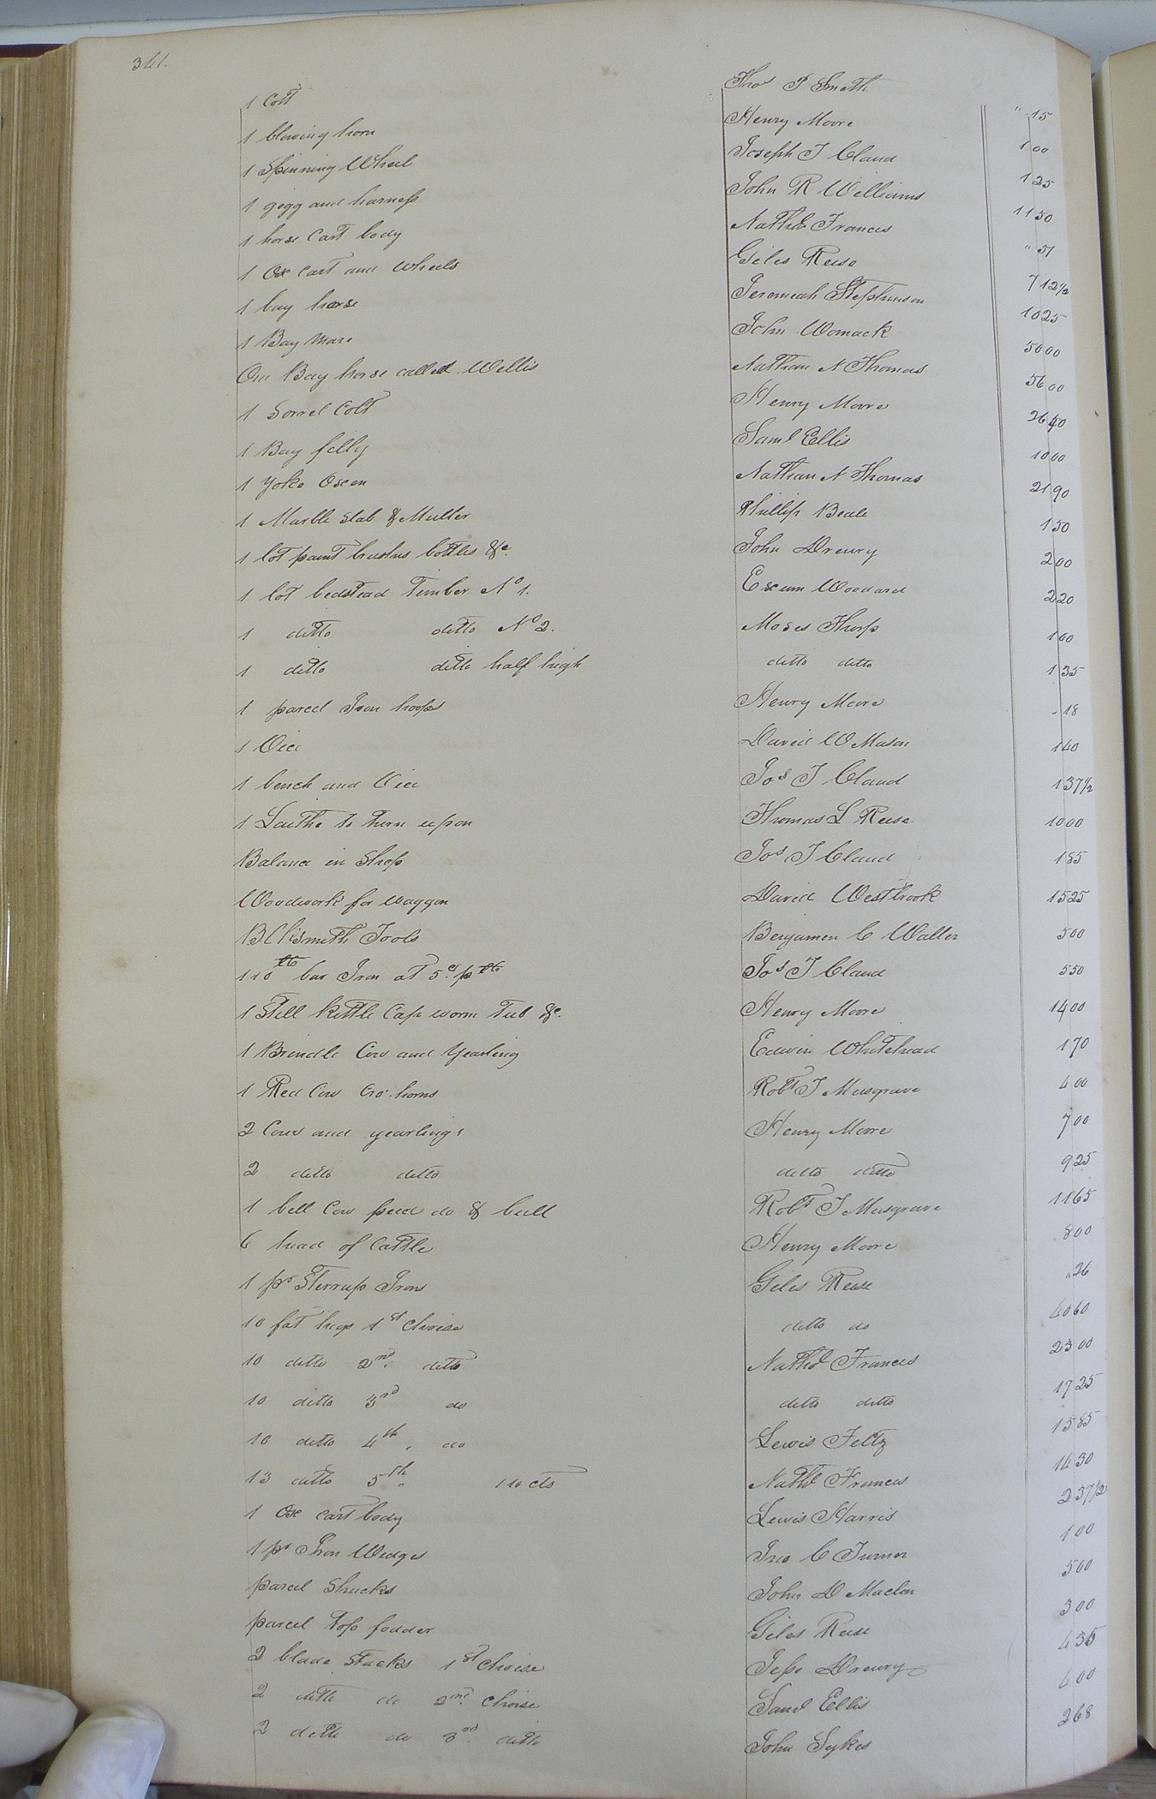 341.
1 Cott Thos P Smith " 15
1 blowing horn Henry Moore 1 00
1 Spinning Wheel Joseph T Claud 1 25
1 gigg and harness John R Williams 11 50
1 horse Cart body Nathl Frances " 51
1 Ox Cart and Wheels Giles Reese 7 12½
1 bay horse Jeremeah Stephenson 10 25
1 Bay Mare John Womack 50 00
One Bay horse called Wellis Nathan N Thomas 56 00
1 Sorrel Colt Henry Moore 26 40
1 Bay filly Saml Ellis 10 00
1 Yoke Oxen Nathan N Thomas 21 90
1 Marble Slab & Muller Phillip Beale 1 50
1 lot paint brushes bottles &c. John Drewry 2 00
1 lot bedstead Timber No 1. Exum Woodard 2 20
1 ditto ditto No 2. Moses Tharp 1 00
1 ditto ditto half high ditto ditto 1 35
1 parcel Iron hoops Henry Moore " 18
1 Vice David W Mason 1 40
1 bench and Vice Jos T Claud 1 37½
1 Laithe to turn upon Thomas L Reese 10 00
Balance in Shop Jos T Claud 1 85
Woodwork for Waggon David Westbrook 15 25
Blksmith Tools Benjamen C Waller 5 00
110 lbs bar Iron at 5 c. p lb Jos T Claud 5 50
1 Still Kettle Cap worm Tub &c. Henry Moore 14 00
1 Brindle Cow and Yearling Edwin Whitehead 1 70
1 Red Cow Cro: horns Robt T Musgrave 4 00
2 Cows and yearlings Henry Moore 7 00
2 ditto ditto ditto ditto 9 25
1 bell Cow pied do & bull Robt T Musgrave 11 65
6 head of Cattle Henry Moore 8 00
1 pr Stirrup Irons Giles Reese " 26
10 fat hogs 1st Choise ditto do 40 60
10 ditto 2nd. ditto Nathl Frances 23 00
10 ditto 3rd do ditto ditto 17 25
10 ditto 4th. do Lewis Feltz 15 85
13 ditto 5th 110 cts Nathl Frances 14 30
1 Ox cart body Lewis Harris 2 37½
1 pr Iron Wedges Jno C Turner 1 00
parcel Shucks John D Maclen 5 00
parcel Top fodder Giles Reese 3 00
2 blade Stacks 1st Choise Jesse Drewry 4 35
2 ditto do 2nd. Choise Saml Ellis 4 00
2 ditto do 3rd ditto John Sykes 2 68